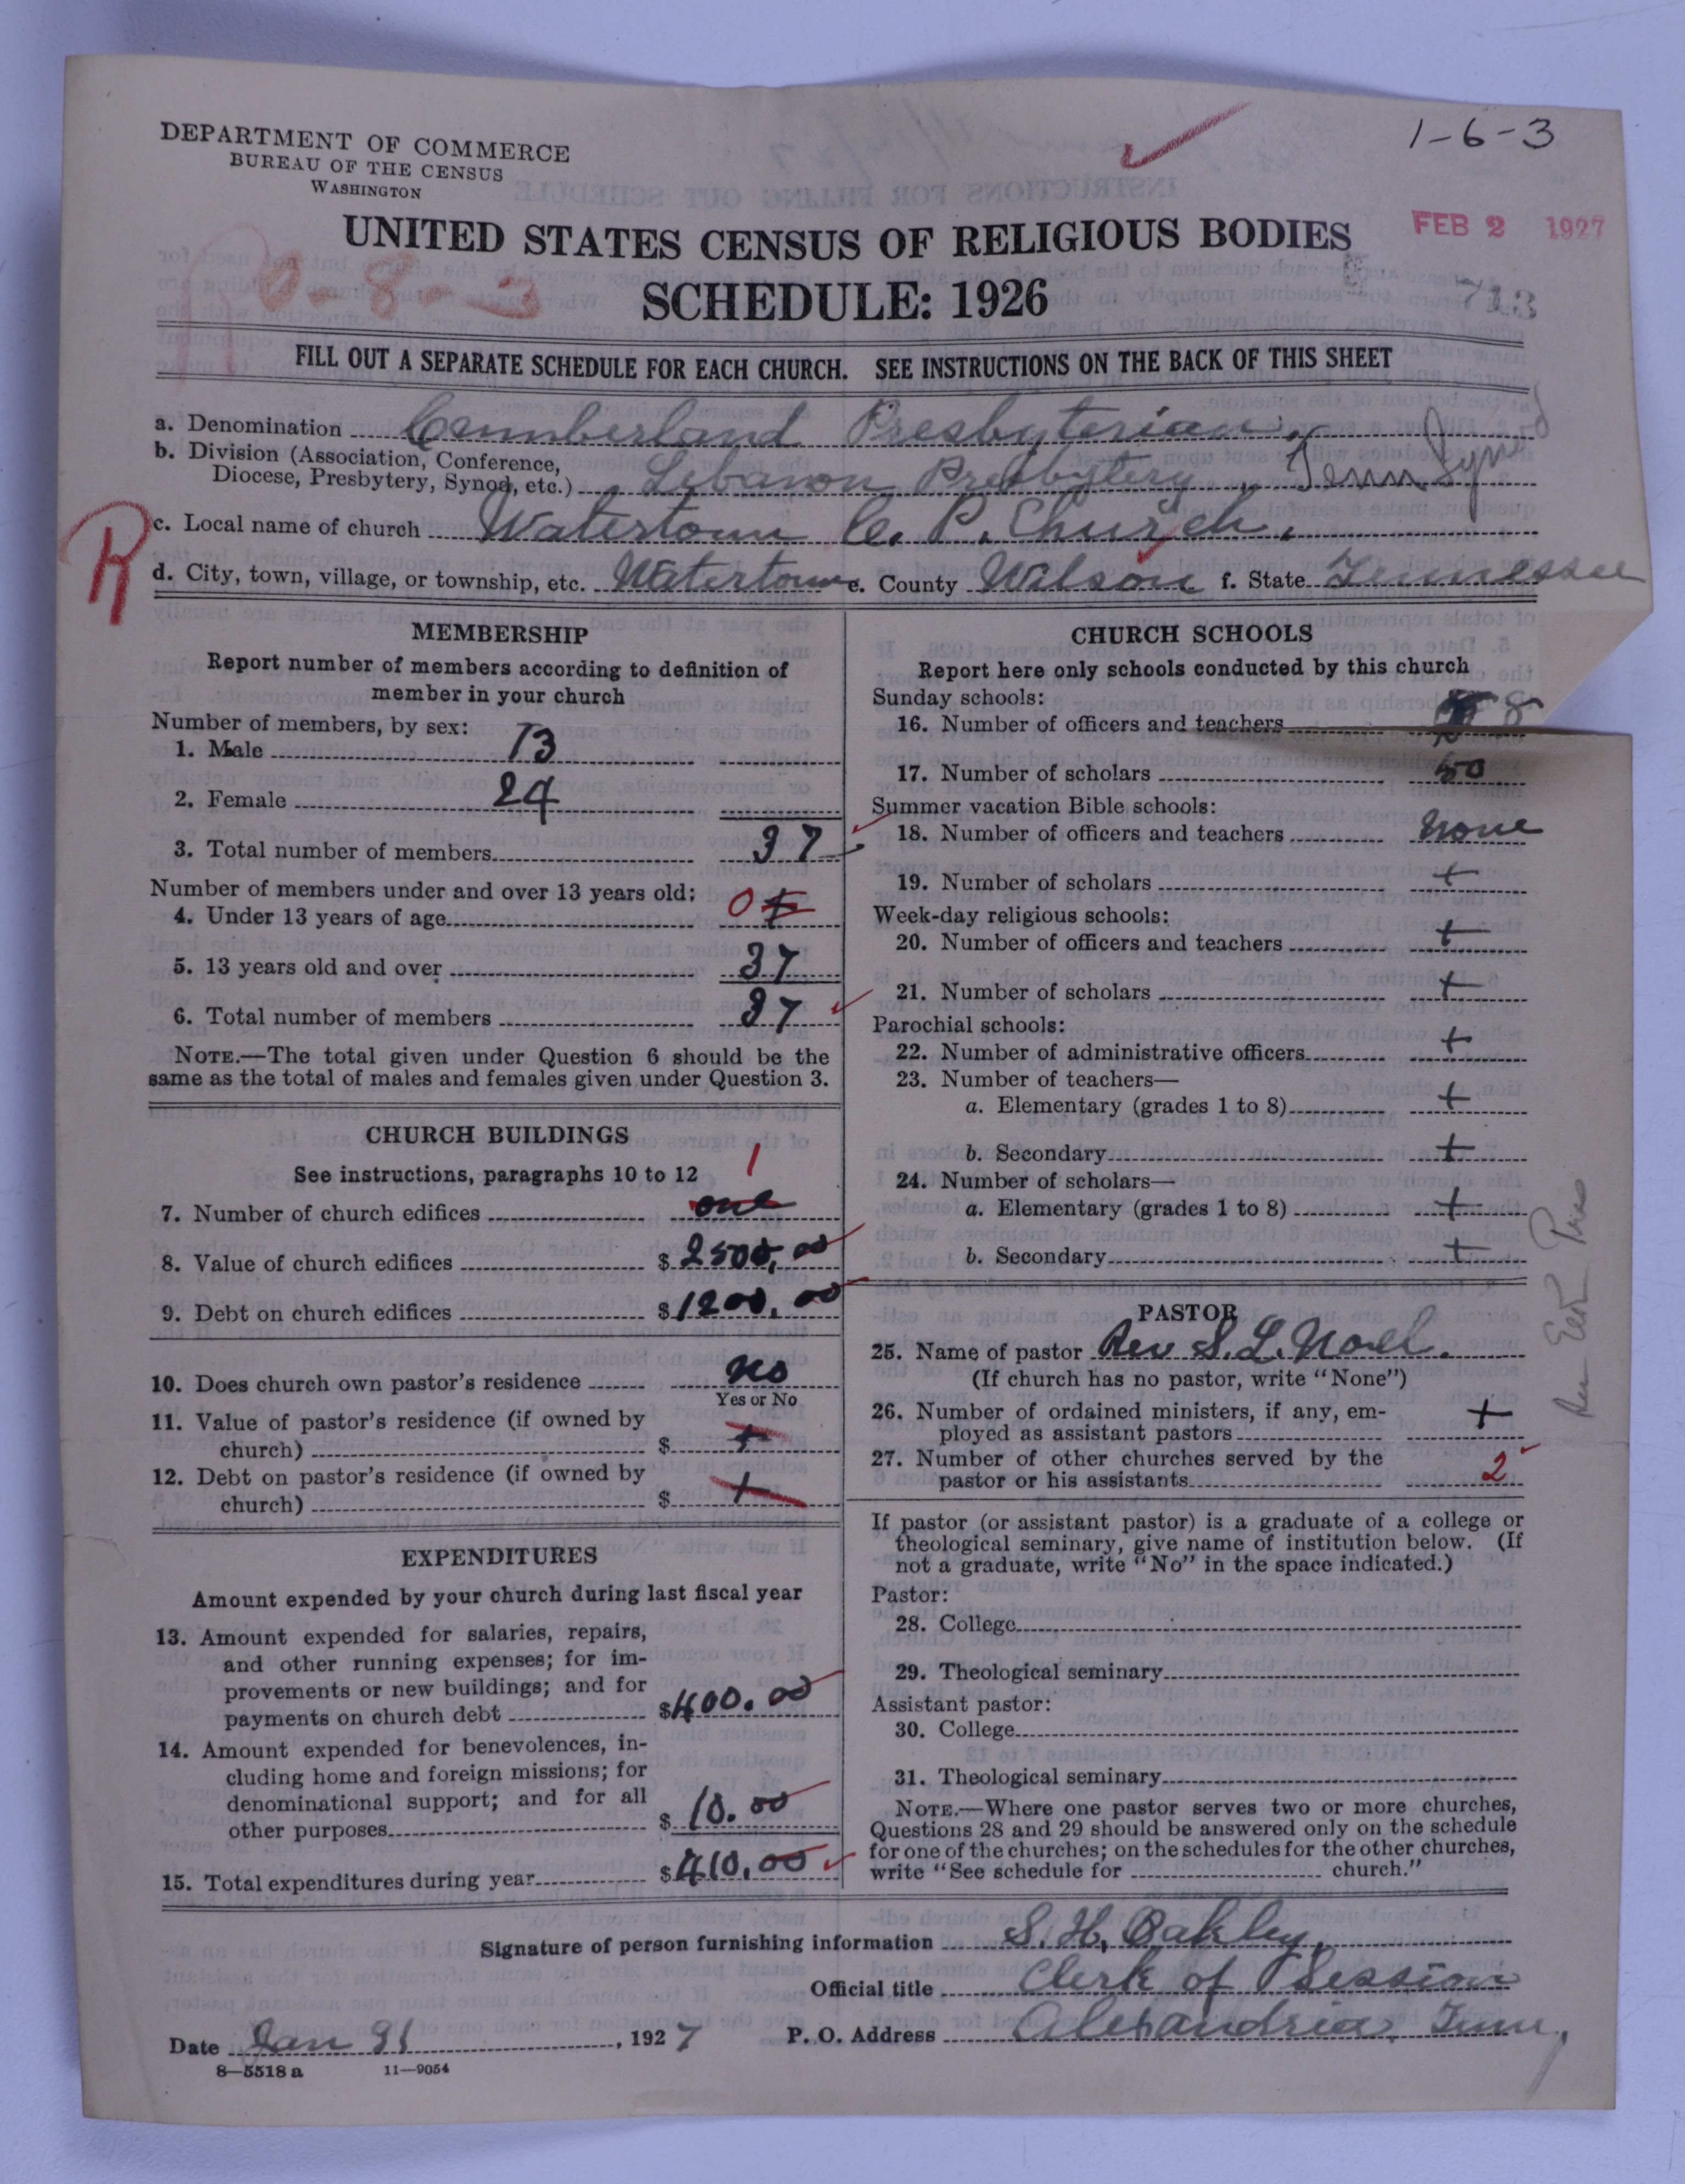 DEPARTMENT OF COMMERCE
BUREAU OF THE CENSUS
WASHINGTON
1-6-3
FEB 2 1927
UNITED STATES CENSUS OF RELIGIOUS BODIES
SCHEDULE: 1926
0-8-3
713
FILL OUT A SEPARATE SCHEDULE FOR EACH CHURCH. SEE INSTRUCTIONS ON THE BACK OF THIS SHEET
a. Denomination Cumberland Presbyterian
b. Division (Association, Conference,
Diocese, Presbytery, Synod, etc.) Lebanon Presbytery, Tenn Syn
R
c. Local name of church Watertown C. P. Church.
d. City, town, village, or township, etc. Watertown e. County Wilson f. State Tennessee
MEMBERSHIP
Report number of members according to definition of
member in your church
Number of members, by sex:
1. Male 13
2. Female 24
3. Total number of members 37
Number of members under and over 13 years old:
4. Under 13 years of age 0
5. 13 years old and over 37
6. Total number of members 37
NOTE.—The total given under Question 6 should be the
same as the total of males and females given under Question 3.
CHURCH BUILDINGS
See instructions, paragraphs 10 to 12
1
7. Number of church edifices one
8. Value of church edifices $ 2500.00
9. Debt on church edifices $ 1200.00
10. Does church own pastor's residence No
Yes or No
11. Value of pastor's residence (if owned by
church) $ +
12. Debt on pastor's residence (if owned by
church) $ +
EXPENDITURES
Amount expended by your church during last fiscal year
13. Amount expended for salaries, repairs,
and other running expenses; for im-
provements or new buildings; and for
payments on church debt $400.00
14. Amount expended for benevolences, in-
cluding home and foreign missions; for
denominational support; and for all
other purposes $ 10.00
15. Total expenditures during year $410.00
CHURCH SCHOOLS
Report here only schools conducted by this church
Sunday schools:
16. Number of officers and teachers 8
17. Number of scholars 50
Summer vacation Bible schools:
18. Number of officers and teachers None
19. Number of scholars +
Week-day religious schools:
20. Number of officers and teachers +
21. Number of scholars +
Parochial schools:
22. Number of administrative officers +
23. Number of teachers—
a. Elementary (grades 1 to 8) +
b. Secondary +
24. Number of scholars—
a. Elementary (grades 1 to 8) +
b. Secondary +
PASTOR
25. Name of pastor Rev S. L. Noel.
(If church has no pastor, write "None")
26. Number of ordained ministers, if any, em-
ployed as assistant pastors +
27. Number of other churches served by the
pastor or his assistants 2
If pastor (or assistant pastor) is a graduate of a college or
theological seminary, give name of institution below. (If
not a graduate, write "No" in the space indicated.)
Pastor:
28. College
29. Theological seminary
Assistant pastor:
30. College
31. Theological seminary
NOTE.—Where one pastor serves two or more churches,
Questions 28 and 29 should be answered only on the schedule
for one of the churches; on the schedules for the other churches,
write "See schedule for church."
Signature of person furnishing information S. H. Oakley,
Official title Clerk of Session
Date Jan 31, 1927 P. O. Address Alexandria, Tenn,
8—5518 a 11—9054